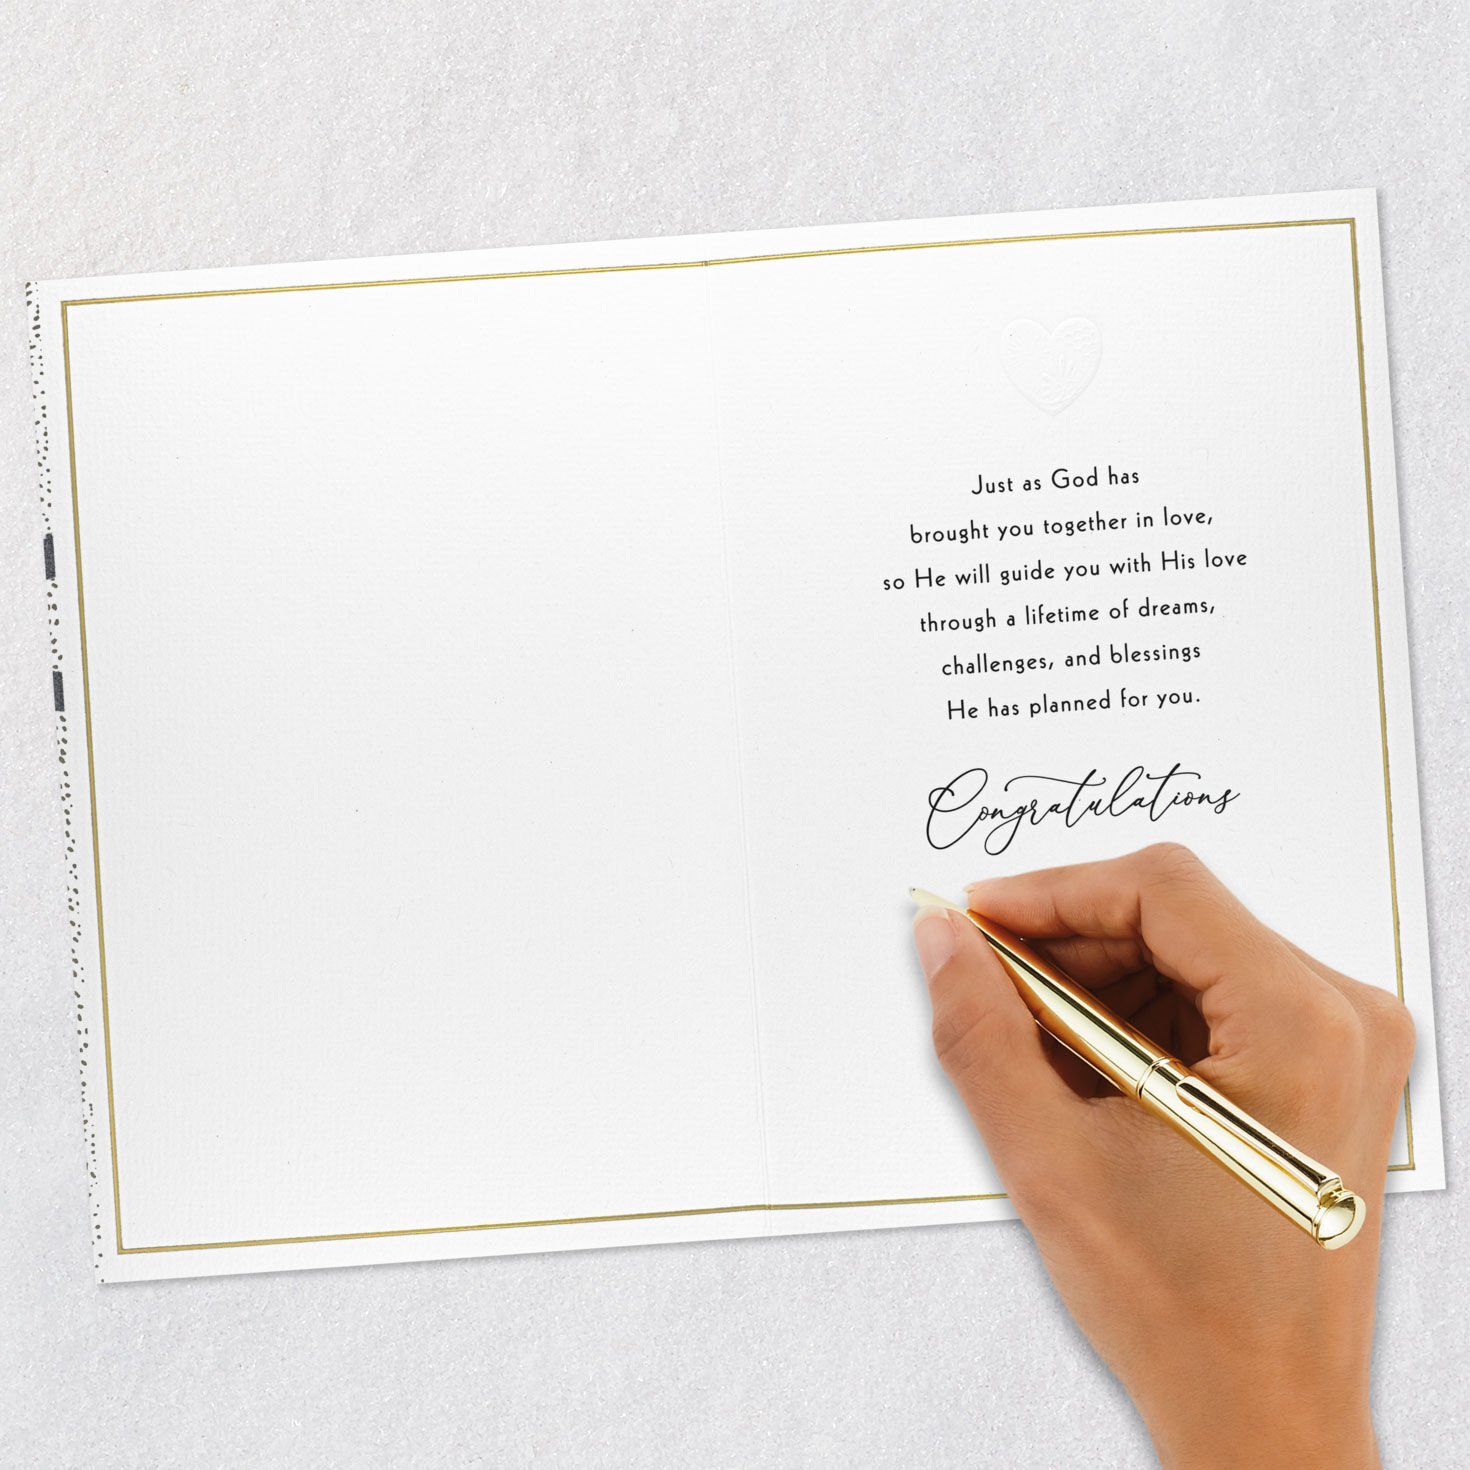 Just as God has
brought you together in love,
so He will guide you with His love
through a lifetime of dreams,
challenges, and blessings
He has planned for you.
Congratulations